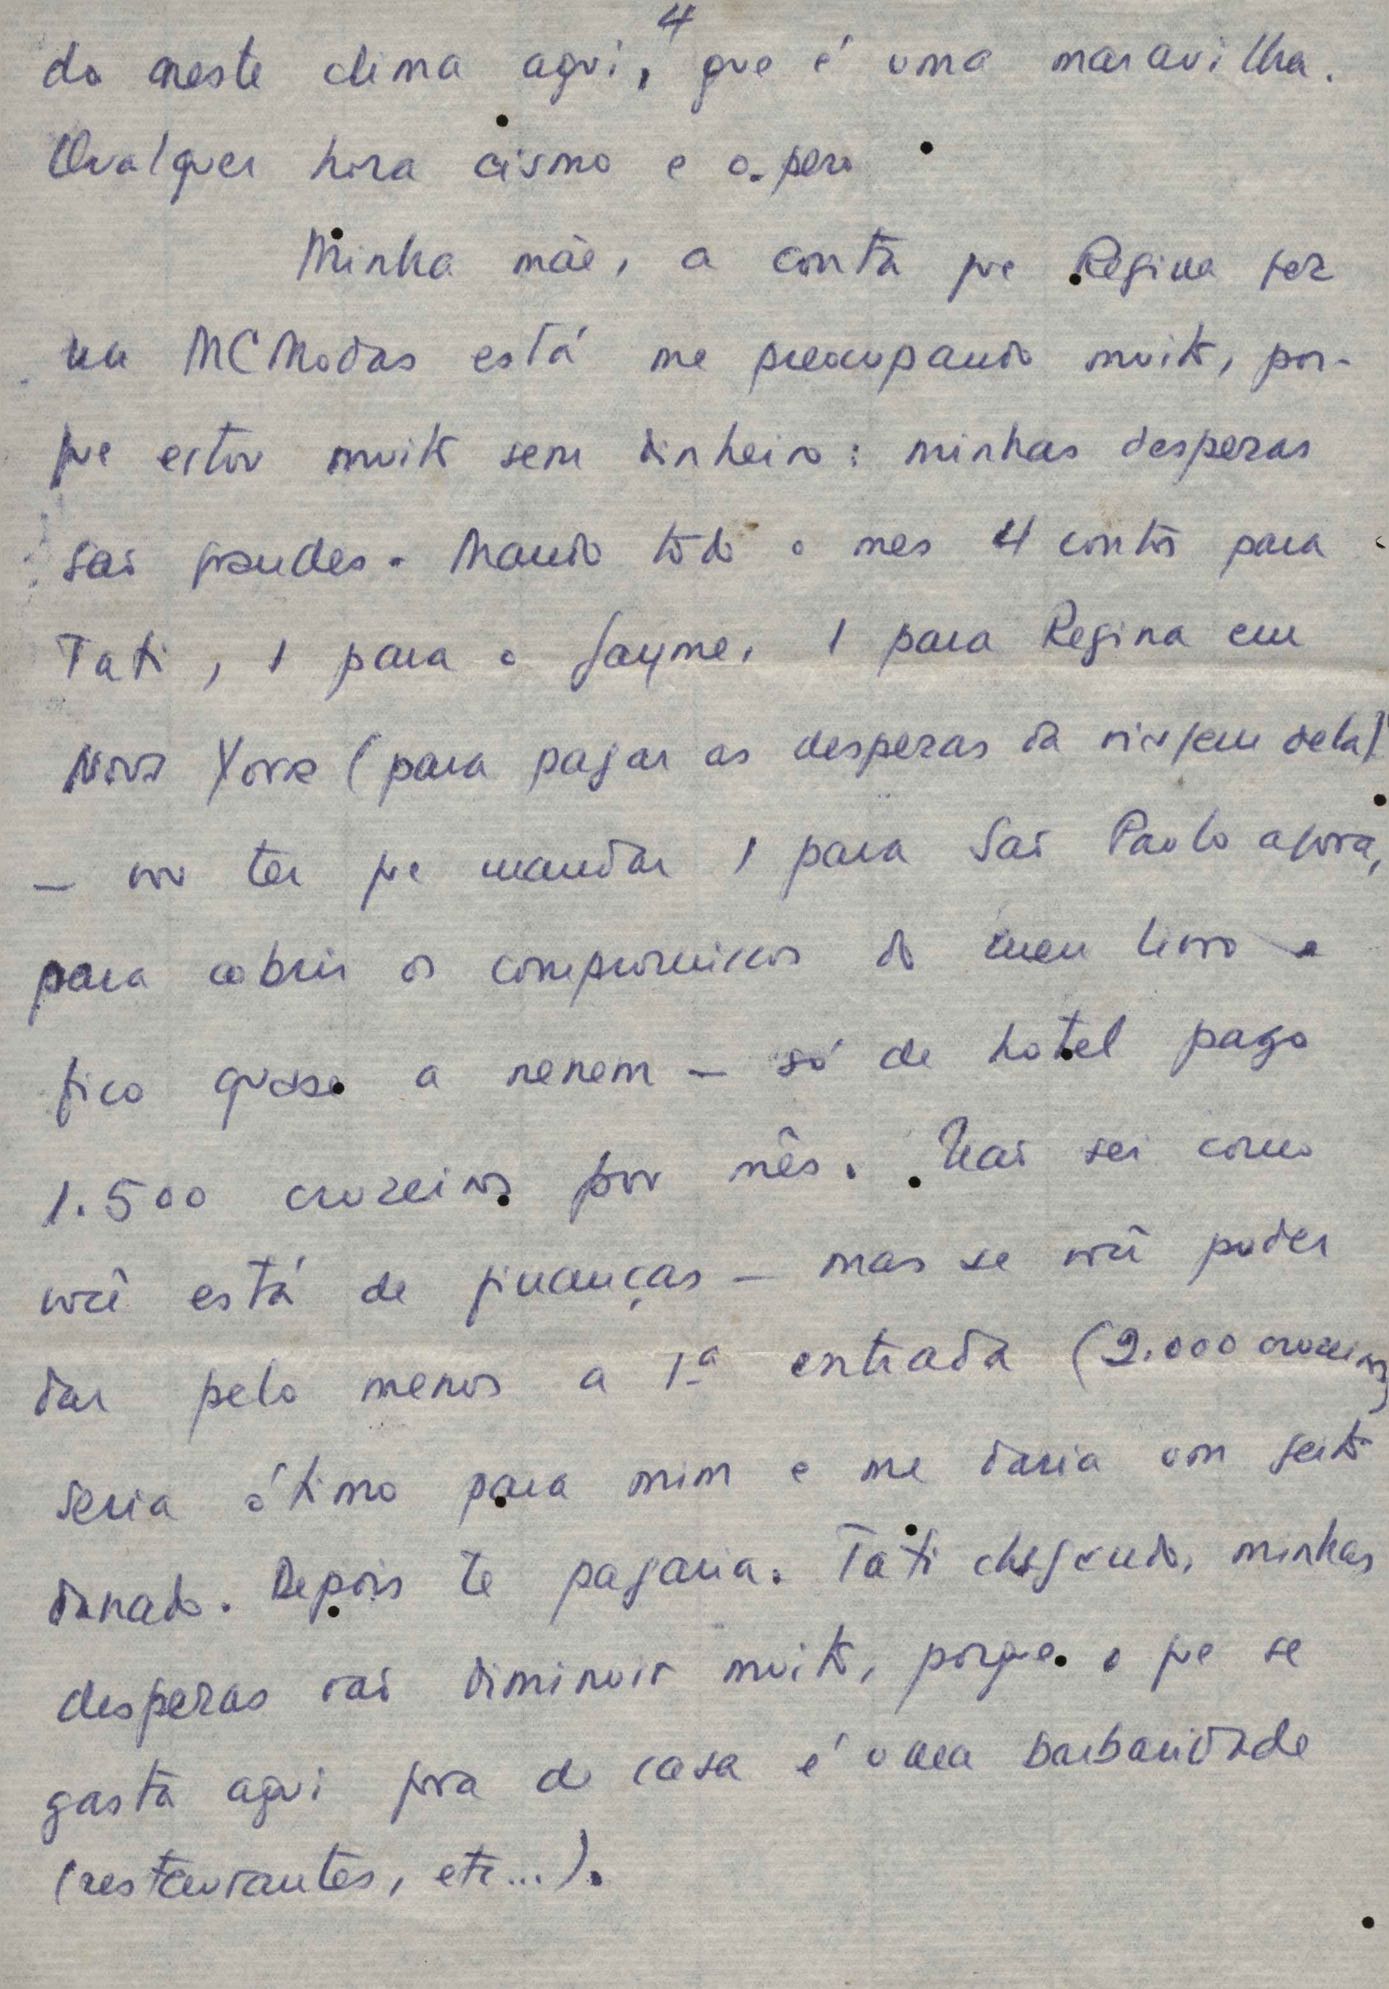 4
do neste clima aqui, que é uma maravilha.
Qualquer hora cismo e opero
Minha mãe, a conta que Regina fez
na MCModas está me preocupando muito, por-
que estou muito sem dinheiro: minhas despezas
são grandes. Mando todo o mes 4 contos para
Tati, 1 para o Jayme, 1 para Regina em
Nova York (para pagar as despezas da viagem dela)
— vou ter que mandar 1 para São Paulo agora,
para cobrir os compromissos do meu livro e
fico quase a nenem — só de hotel pago
1.500 cruzeiros por mês. Não sei como
você está de finanças — mas se você puder
dar pelo menos a 1ª entrada (2.000 cruzeiros)
seria ótimo para mim e me daria um jeito
danado. Depois te pagaria. Tati chegando, minhas
despezas vão diminuir muito, porque o que se
gasta aqui fora de casa é uma barbaridade
(restaurantes, etc...).